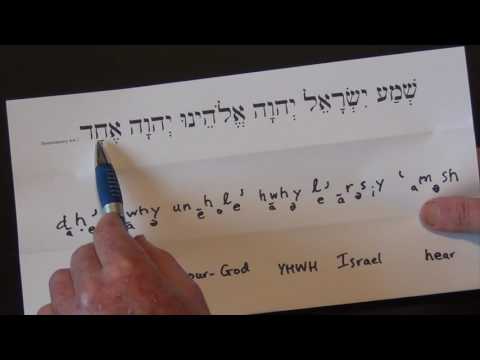 שְׁמַע יִשְׂרָאֵל יְהוָה אֱלֹהֵינוּ יְהוָה אֶחָד
dḥ' why unhl' hwhy l'rsiy 'msh
our-God YHWH Israel hear